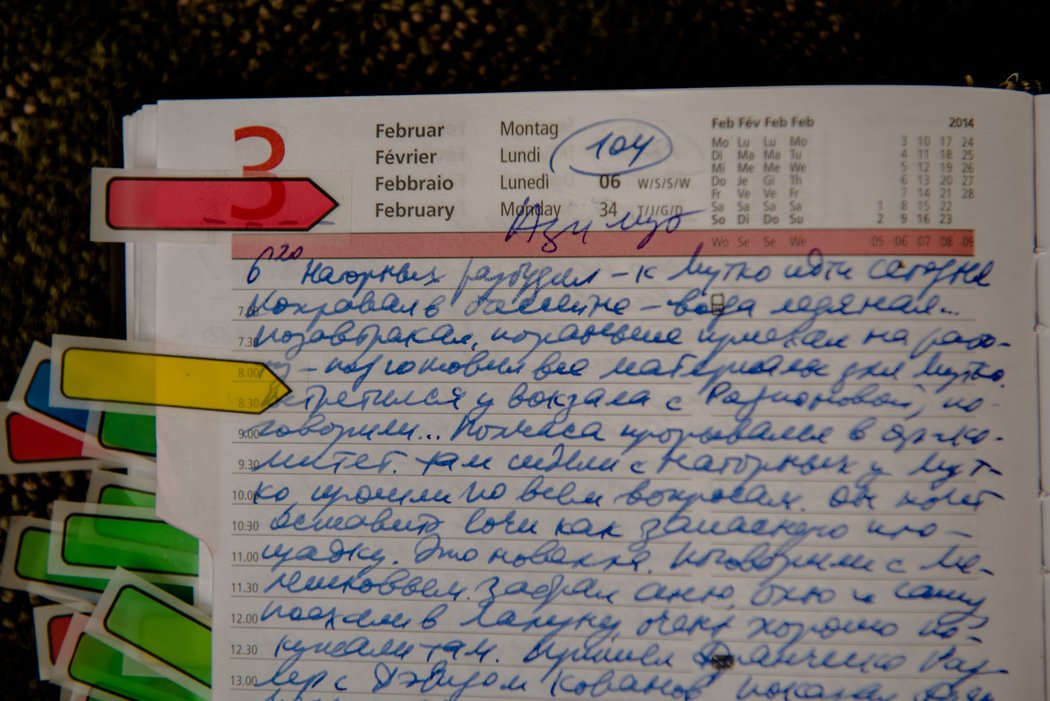 3
Februar
Février
Febbraio
February
Montag
Lundi
Lunedi
Monday
104
06 W/S/S/W
34 T/J/G/D
Feb Fév Feb Feb 2014
Mo Lu Lu Mo 3 10 17 24
Di Ma Ma Tu 4 11 18 25
Mi Me Me We 5 12 19 26
Do Je Gi Th 6 13 20 27
Fr Ve Ve Fr 7 14 21 28
Sa Sa Sa Sa 1 8 15 22
So Di Do Su 2 9 16 23
Wo Se Se We 05 06 07 08 09
6 20 Нагорных разбудил – к Мутко идти сегодня
7.00 в бассейне – вода ледяная...
7.30 позавтракал, пораньше приехал на рабо-
8.00 ту – подготовил все материалы для Мутко.
8.30 Встретился у вокзала с Родионовой, по-
9.00 говорили... Полчаса прорывался в оргко-
9.30 митет. Там сидели с Нагорных у Мут-
10.00 ко, прошли по всем вопросам. Он хочет
10.30 оставить Сочи как запасную пло-
11.00 щадку. Это новенькое. Поговорили с
11.30 Забрал Аню, Олю и Сашу
12.00 поехали в очень хорошо по-
12.30 кушали там. Пришел
13.00 с Дэвидом показал